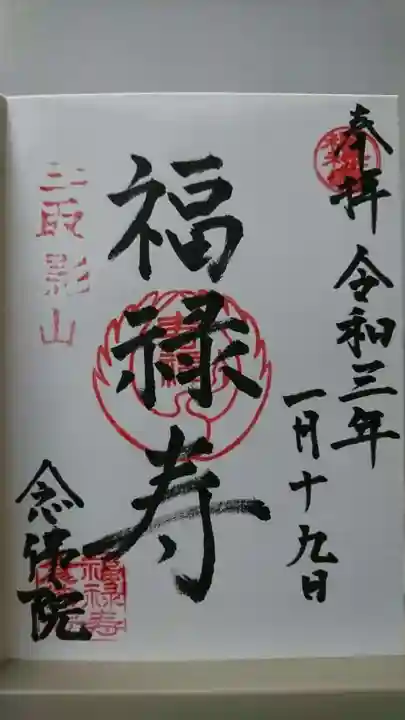 奉拝
令和三年
一月十九日
福禄寿
念佛院
福禄寿